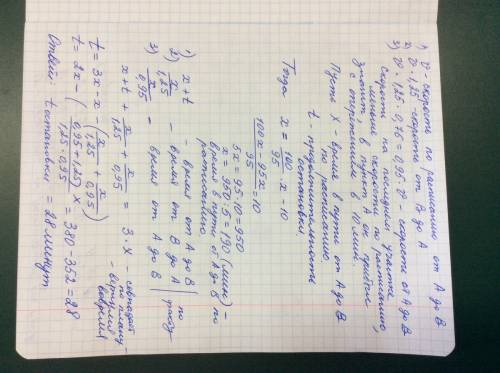 1) V - скорость по расписанию от А до В
2) V · 1,25 скорость от В до А
3) V · 1,25 · 0,76 = 0,95 · V - скорость от А до В.
скорость на последнем участке
меньше скорости по расписанию,
значит, в пункт А он прибыл
с опережением в 10 мин.
Пусть x - время в пути от А до В
по расписанию.
t - продолжительность
остановки.
Тогда x = 100/95 · x - 10
(100x - 95x)/95 = 10
5x = 95 · 10 = 950
x = 950 : 5 = 190 (мин) -
время в пути от А до В по
расписанию.
1) x + t - время от А до В
2) x/1,25 - время от В до А | по
3) x/0,95 - время от А до В
x + t + x/1,25 + x/0,95 = 3 · x - совпадает
по плану -
вернулся
вовремя
t = 3x - x - (x/1,25 + x/0,95)
t = 2x - (0,95 + 1,25)/(1,25 · 0,95) x = 380 - 352 = 28
Ответ: t остановки = 28 минут